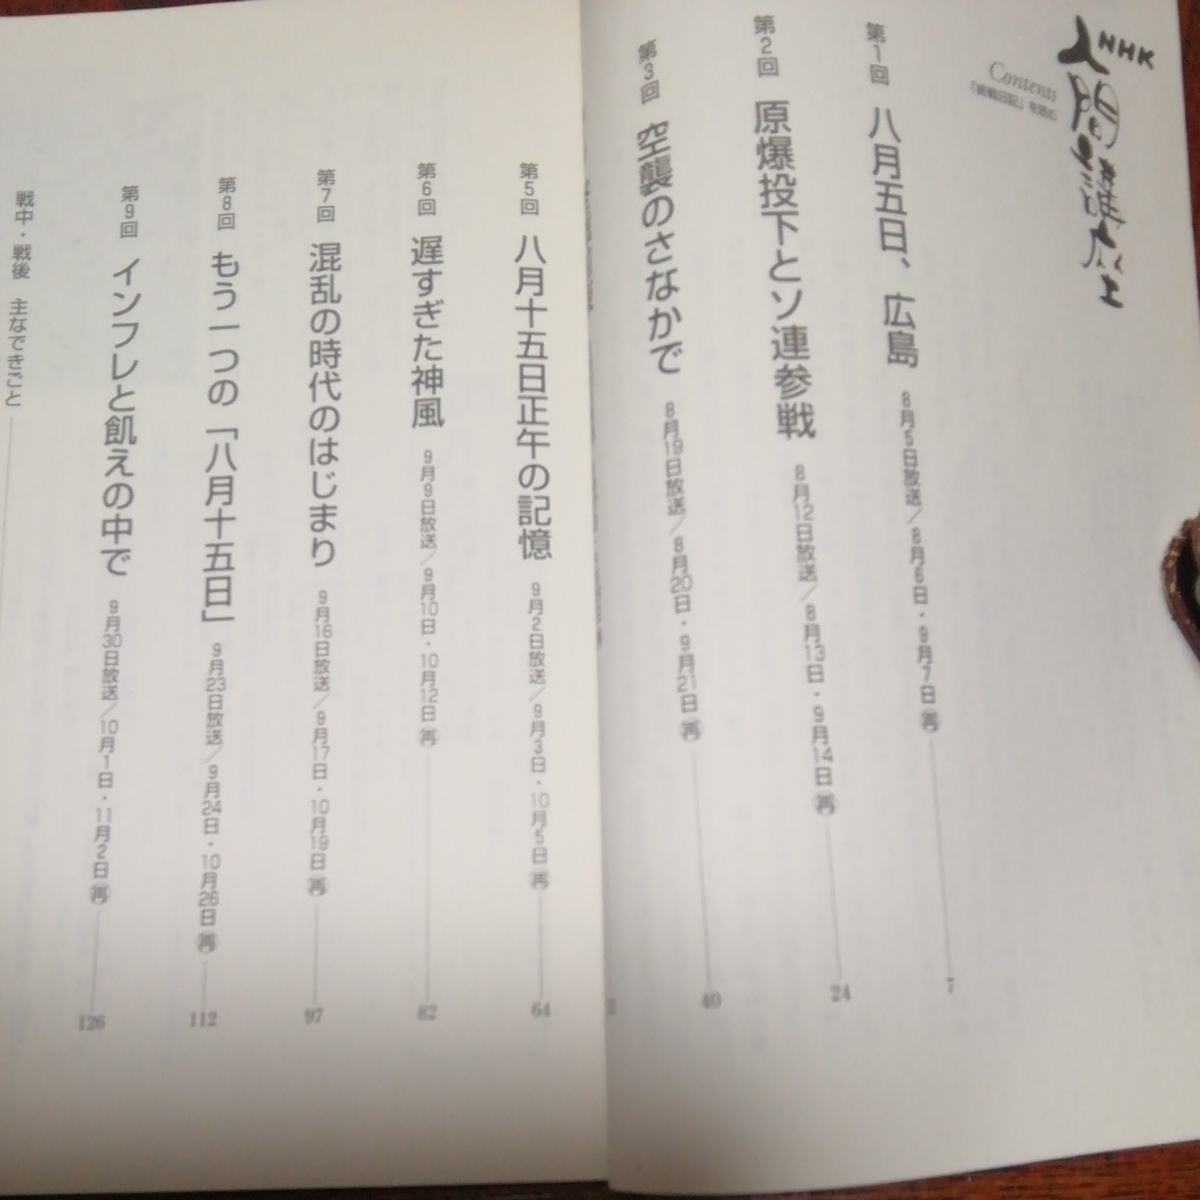 NHK
人間講座
Contents
「終戦日記」を読む
第1回 八月五日、広島 8月5日放送/8月6日・9月7日再 7
第2回 原爆投下とソ連参戦 8月12日放送/8月13日・9月14日再 24
第3回 空襲のさなかで 8月19日放送/8月20日・9月21日再 40
第5回 八月十五日正午の記憶 9月2日放送/9月3日・10月5日再 64
第6回 遅すぎた神風 9月9日放送/9月10日・10月12日再 82
第7回 混乱の時代のはじまり 9月16日放送/9月17日・10月19日再 97
第8回 もう一つの「八月十五日」 9月23日放送/9月24日・10月26日再 112
第9回 インフレと飢えの中で 9月30日放送/10月1日・11月2日再 126
戦中・戦後 主なできごと